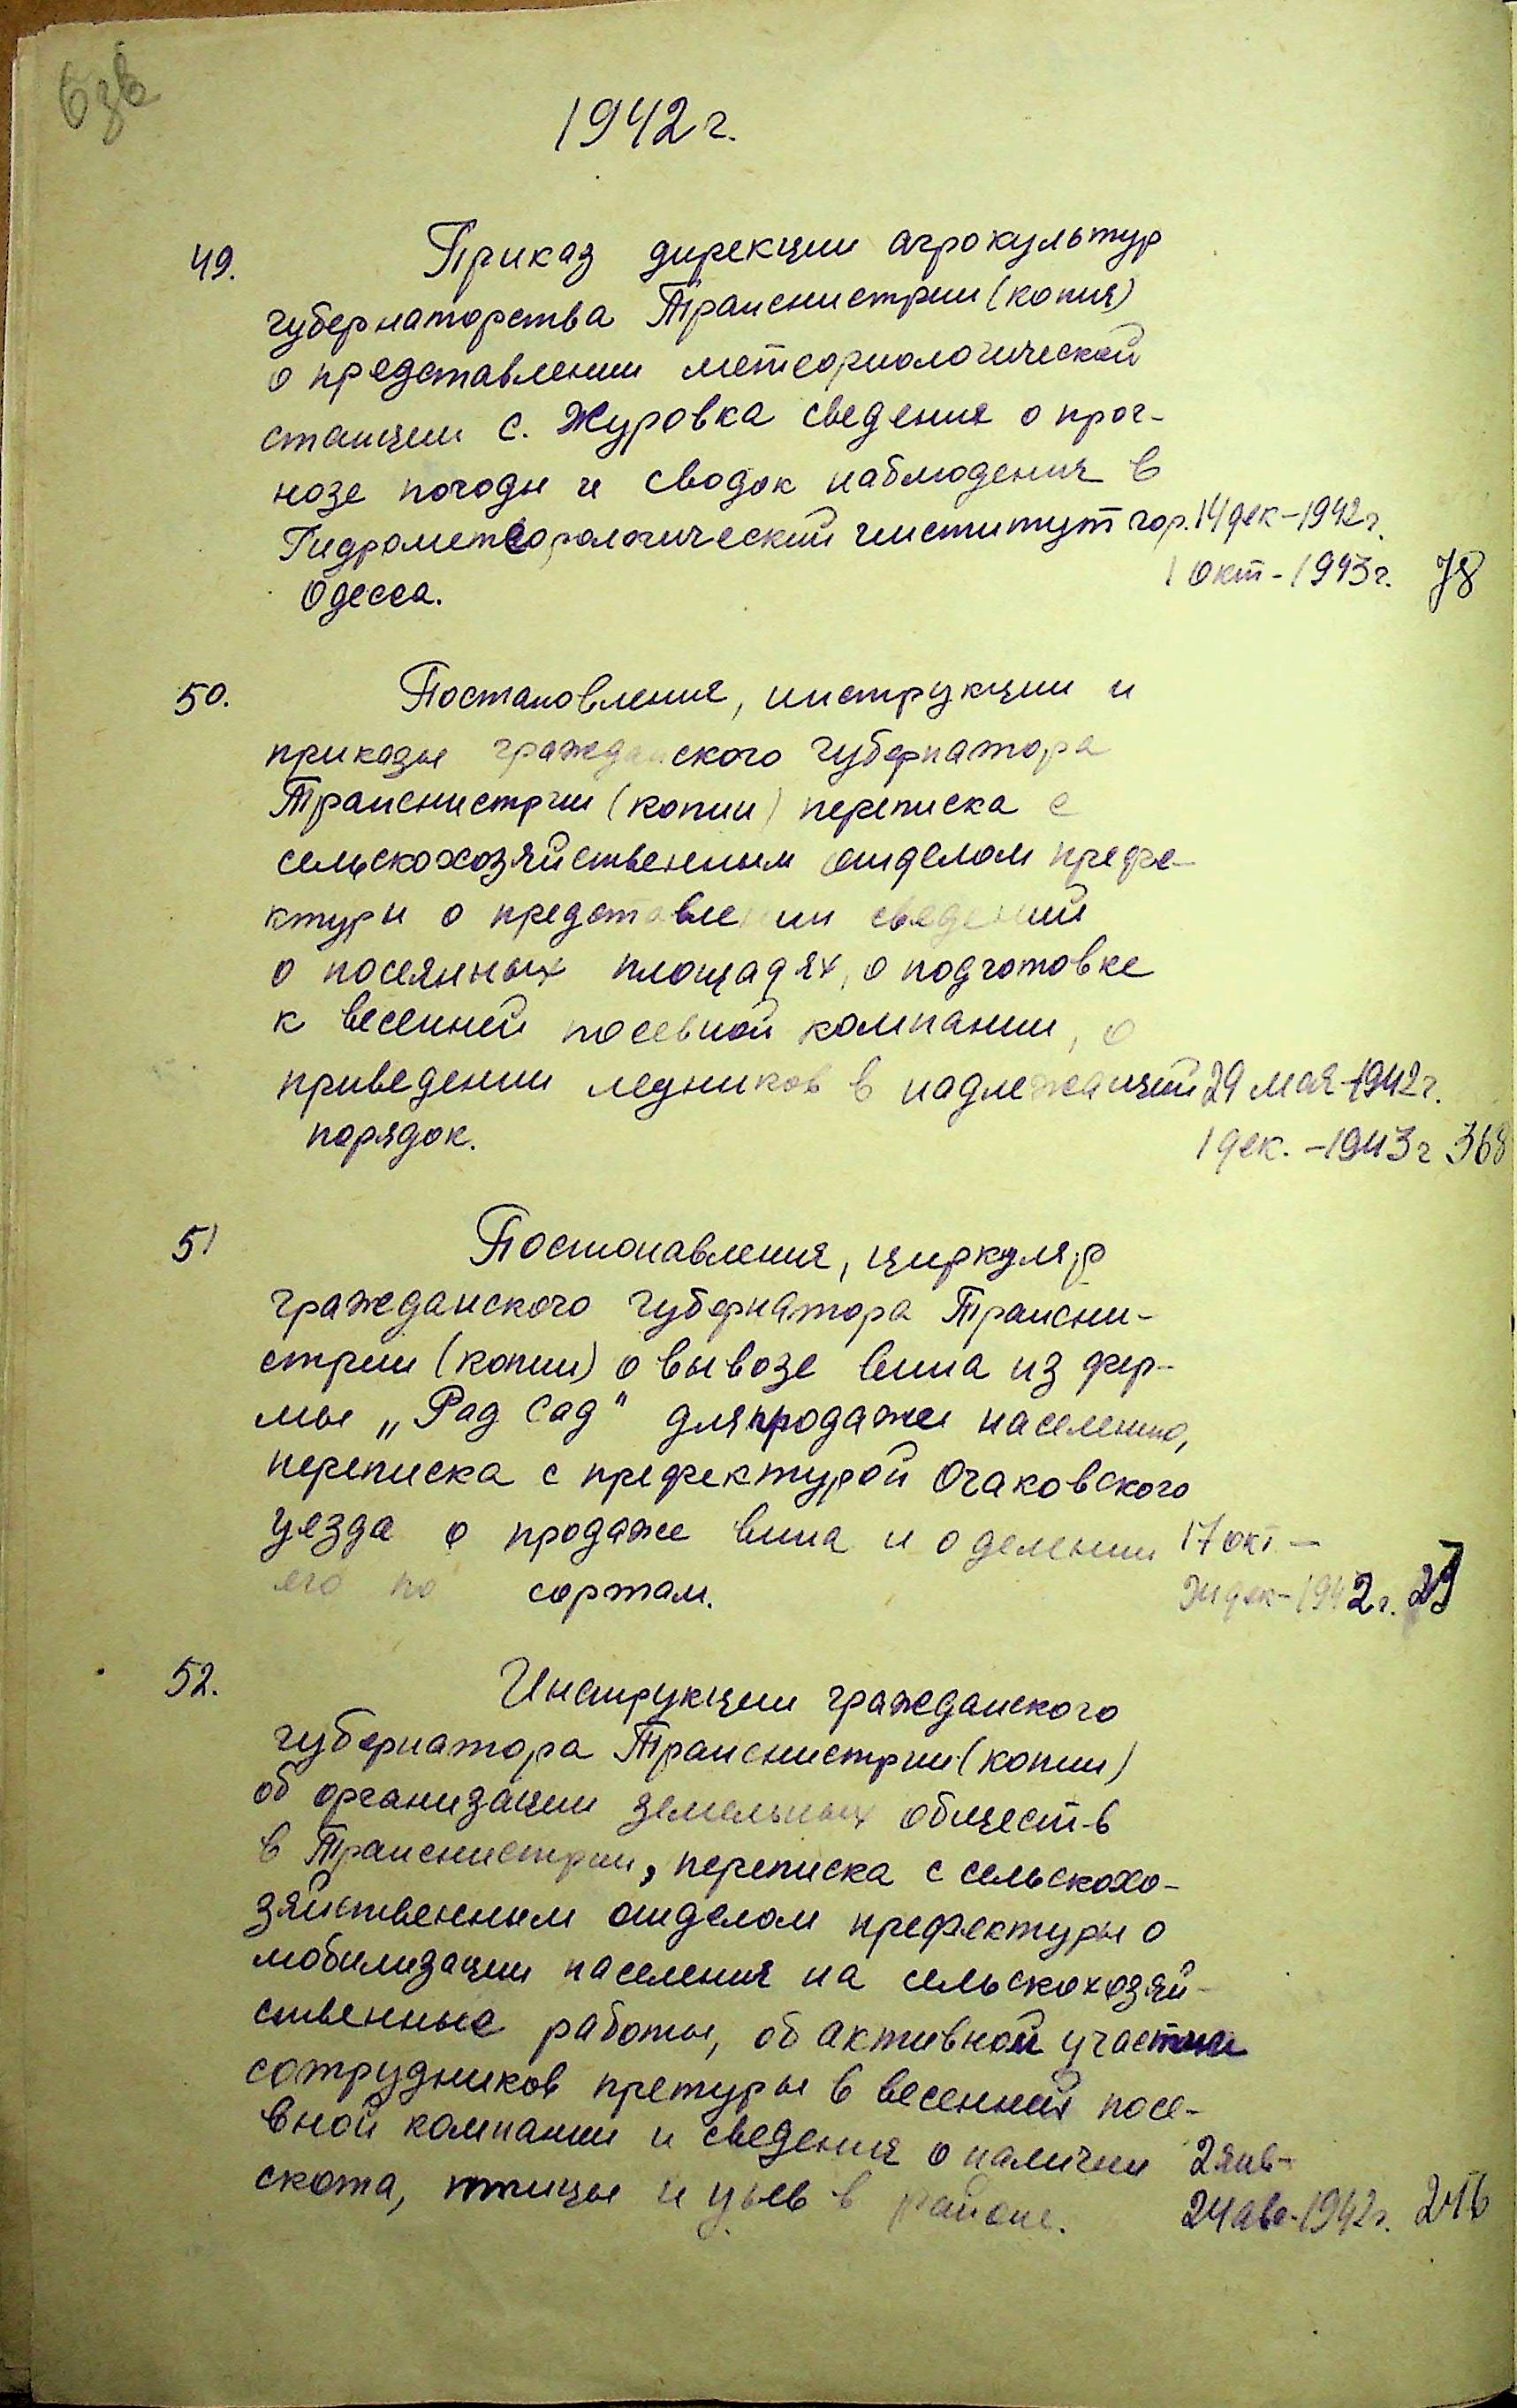 6зв
1942 г.
49. Приказ дирекции агрокультур
губернаторства Транснистрии (копия)
о представлении метеориологической
станции с. Журовка сведения о прог-
нозе погоды и сводок наблюдения в
Гидрометеорологический институт гор. 14 дек-1942 г.
Одесса. 1 окт-1943 г. 78
50. Постановления, инструкции и
приказы гражданского губернатора
Транснистрии (копии) переписка с
сельскохозяйственным отделом префе-
ктуры о представлении сведений
о посеянных площадях, о подготовке
к весенней посевной компании, о
приведении ледников в надлежащий 29 мая-1942 г.
порядок. 1 дек.-1943 г 368
51 Постонавления, циркуляр
гражданского губернатора Трансни-
стрии (копии) о вывозе вина из фер-
мы „Рад Сад" для продажи населению,
переписка с префектурой Очаковского
уезда о продаже вина и о делении 17 окт-
его по сортам. дек-1942 г.
52. Инструкции гражданского
губернатора Транснистрии (копии)
об организации земельных обществ
в Транснистрии, переписка с сельскохо-
зяйственным отделом префектуры о
мобилизации населения на сельскохозяй-
ственные работы, об активной участии
сотрудников претуры в весенней посе-
вной компании и сведения о наличии 2 янв-
скота, птицы и ульев в районе. 24 авг-1942 г.